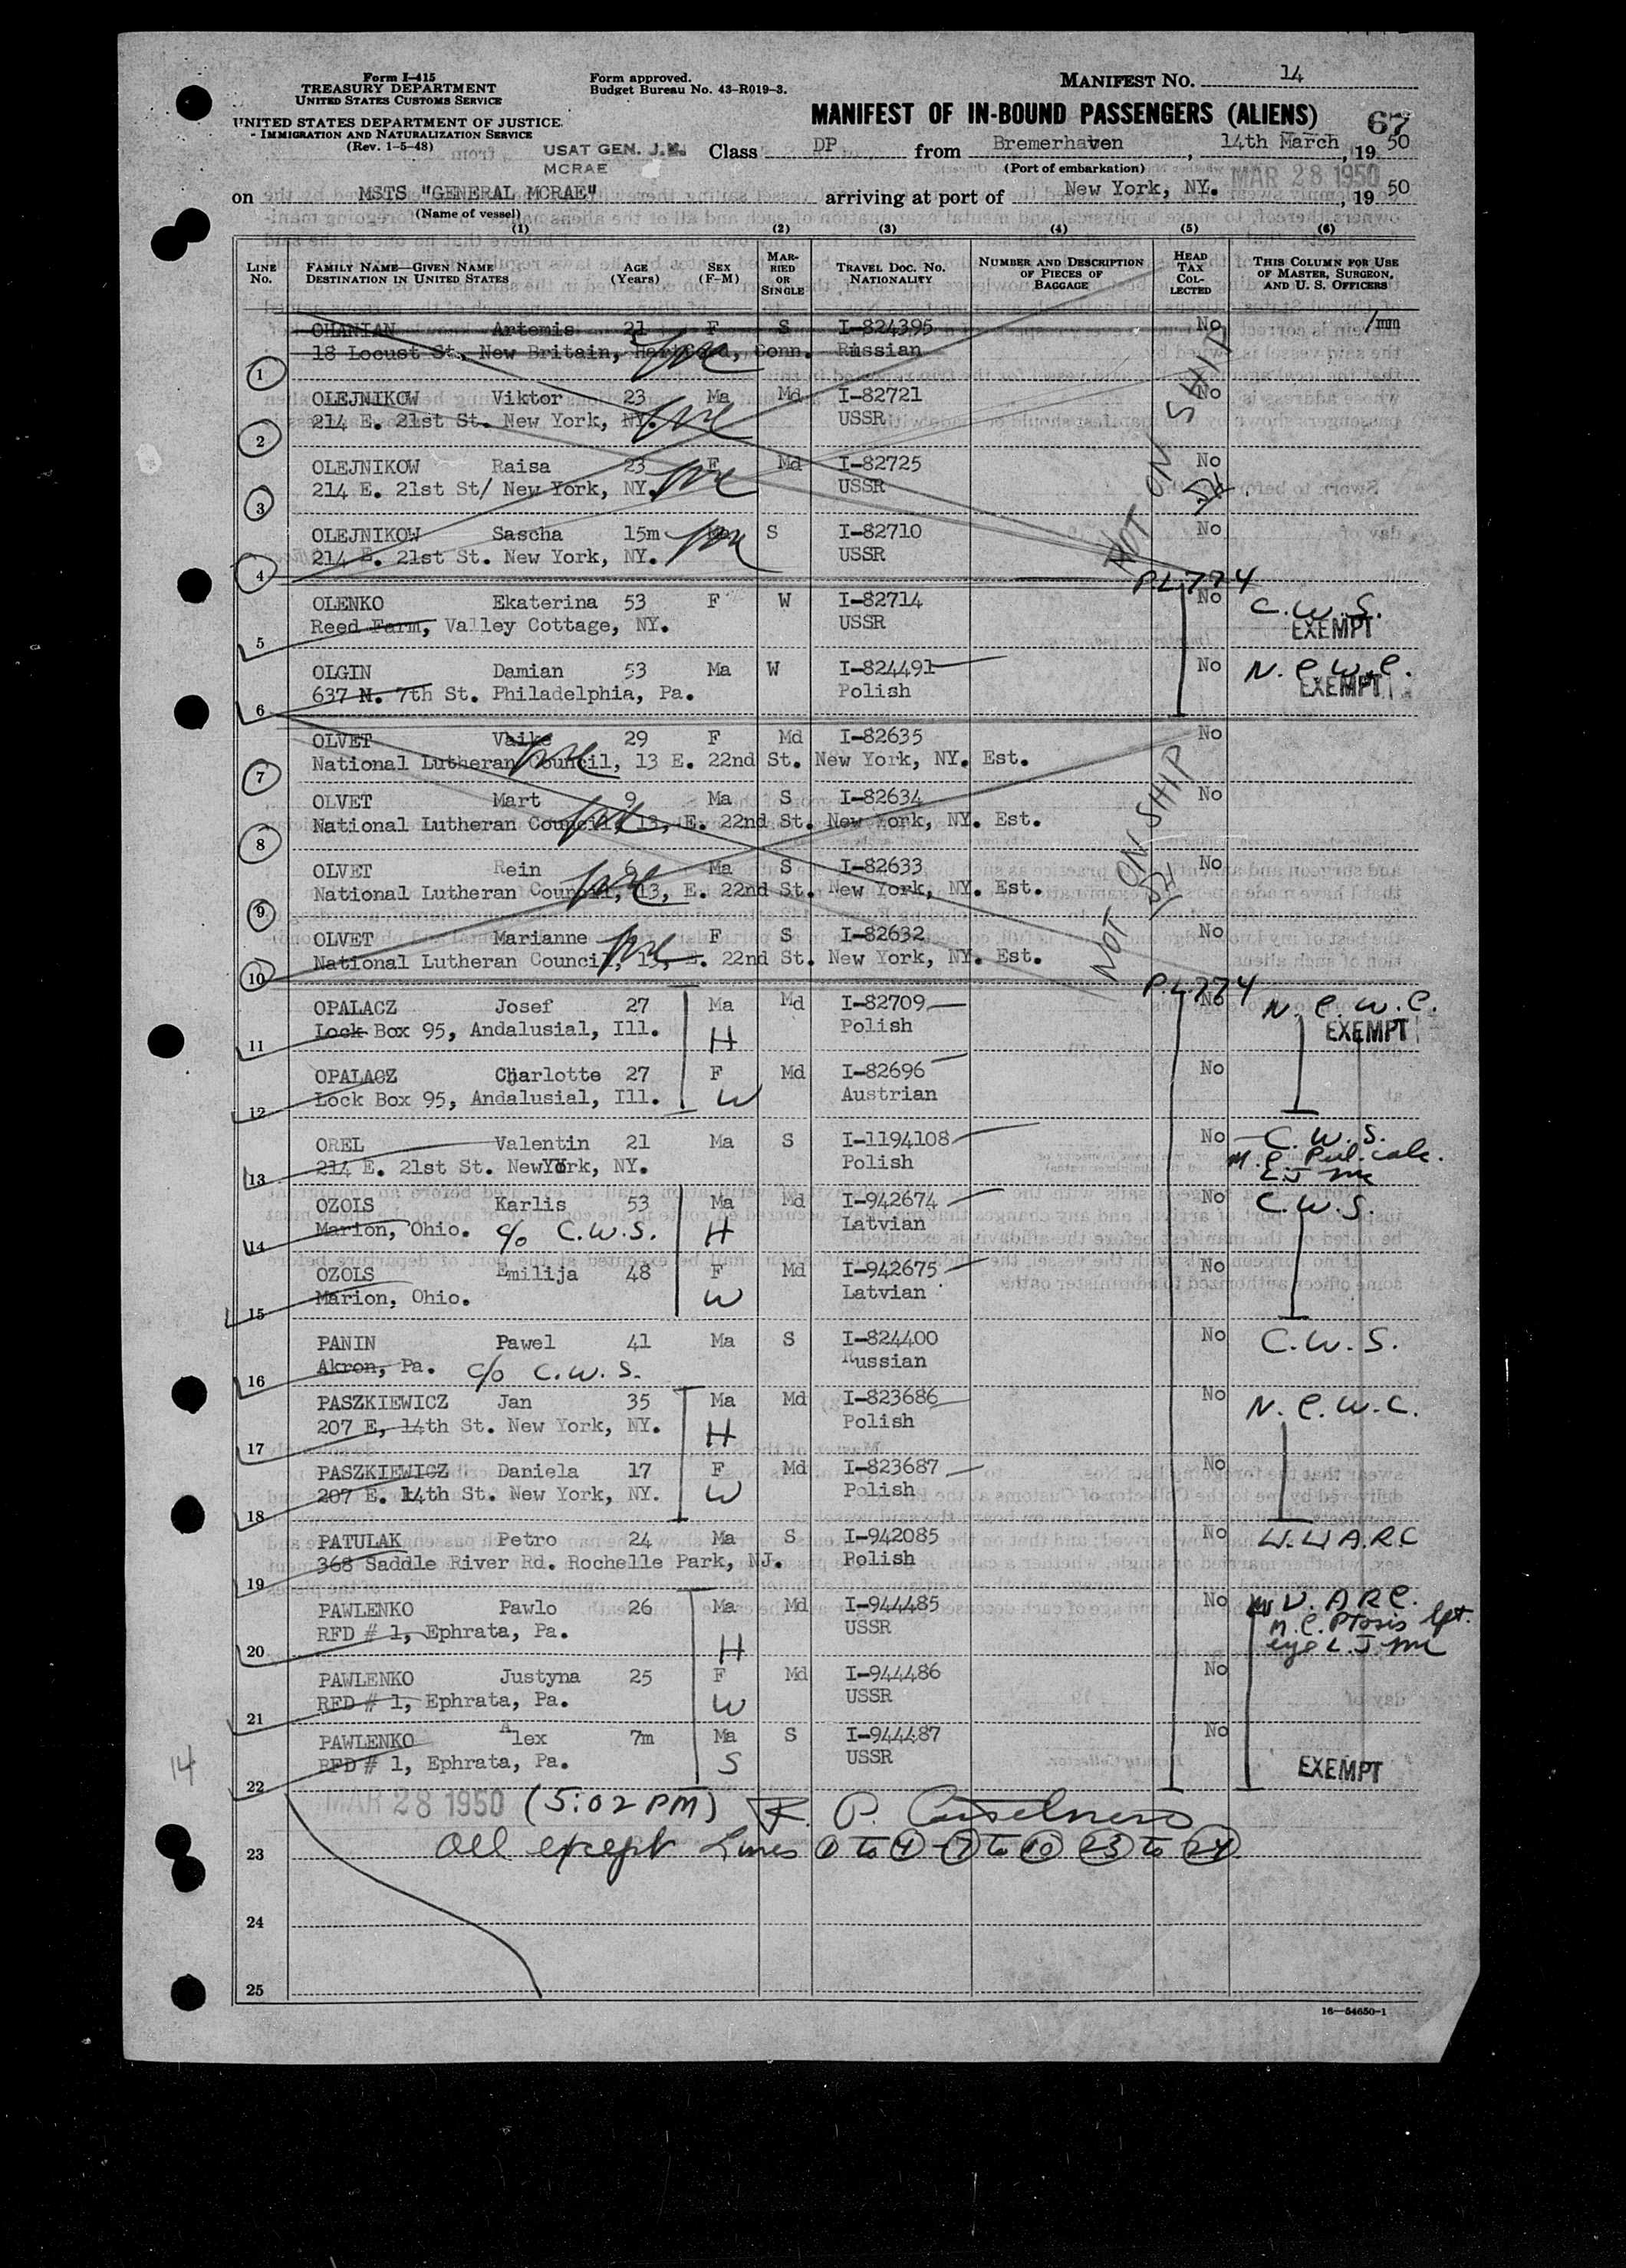 Form I-415
TREASURY DEPARTMENT
UNITED STATES CUSTOMS SERVICE
UNITED STATES DEPARTMENT OF JUSTICE
IMMIGRATION AND NATURALIZATION SERVICE
(Rev. 1-5-48)
Form approved.
Budget Bureau No. 43-R019-3.
MANIFEST NO. 14
MANIFEST OF IN-BOUND PASSENGERS (ALIENS) 67
USAT GEN. J.M.
MCRAE
Class DP from Bremerhaven, 14th March, 19 50
(Port of embarkation)
on MSTS "GENERAL MCRAE" arriving at port of New York, NY. MAR 28 1950, 19 50
(Name of vessel)
(1) (2) (3) (4) (5) (6)
LINE NO. FAMILY NAME—GIVEN NAME DESTINATION IN UNITED STATES AGE (YEARS) SEX (F-M) MARRIED OR SINGLE TRAVEL DOC. NO. NATIONALITY NUMBER AND DESCRIPTION OF PIECES OF BAGGAGE HEAD TAX COLLECTED THIS COLUMN FOR USE OF MASTER, SURGEON, AND U. S. OFFICERS
OHANIAN Artemis 21 F S I-824395 No
1 18 Locust St. New Britain, Hartford, Conn. Russian
OLEJNIKOW Viktor 23 Ma Md I-82721 No
2 214 E. 21st St. New York, NY. USSR
OLEJNIKOW Raisa 23 F Md I-82725 No
3 214 E. 21st St/ New York, NY. USSR
OLEJNIKOW Sascha 15m S I-82710 No
4 214 E. 21st St. New York, NY. USSR
NOT ON SHIP
P.L.774
OLENKO Ekaterina 53 F W I-82714 No C.W.S.
5 Reed Farm, Valley Cottage, NY. USSR EXEMPT
OLGIN Damian 53 Ma W I-824491 No N.C.W.C.
6 637 N. 7th St. Philadelphia, Pa. Polish EXEMPT
OLVET Vaike 29 F Md I-82635 No
7 National Lutheran Council, 13 E. 22nd St. New York, NY. Est.
OLVET Mart 9 Ma S I-82634 No
8 National Lutheran Council, 13, E. 22nd St. New York, NY. Est.
OLVET Rein 6 Ma S I-82633 No
9 National Lutheran Council, 13, E. 22nd St. New York, NY. Est.
OLVET Marianne F S I-82632 No
10 National Lutheran Council, 13, E. 22nd St. New York, NY. Est.
NOT ON SHIP
P.L.774
OPALACZ Josef 27 Ma Md I-82709 No N.C.W.C.
11 Lock Box 95, Andalusial, Ill. H Polish EXEMPT
OPALACZ Charlotte 27 F Md I-82696 No
12 Lock Box 95, Andalusial, Ill. W Austrian
OREL Valentin 21 Ma S I-1194108 No C.W.S.
13 214 E. 21st St. New York, NY. Polish
OZOLS Karlis 53 Ma Md I-942674 No C.W.S.
14 Marion, Ohio. c/o C.W.S. H Latvian
OZOLS Emilija 48 F Md I-942675 No
15 Marion, Ohio. W Latvian
PANIN Pawel 41 Ma S I-824400 No C.W.S.
16 Akron, Pa. c/o C.W.S. Russian
PASZKIEWICZ Jan 35 Ma Md I-823686 No N.C.W.C.
17 207 E, 14th St. New York, NY. H Polish
PASZKIEWICZ Daniela 17 F Md I-823687 No
18 207 E. 14th St. New York, NY. W Polish
PATULAK Petro 24 Ma S I-942085 No U.U.A.R.C
19 368 Saddle River Rd. Rochelle Park, NJ. Polish
PAWLENKO Pawlo 26 Ma Md I-944485 No U.ARC.
20 RFD # 1, Ephrata, Pa. H USSR M.C. Ptosis lft. eye
PAWLENKO Justyna 25 F Md I-944486 No
21 RFD # 1, Ephrata, Pa. W USSR
PAWLENKO Alex 7m Ma S I-944487 No
22 RFD # 1, Ephrata, Pa. S USSR EXEMPT
14
MAR 28 1950 (5:02 PM)
23 All except Lines 1 to 4 - 7 to 10 23 to 24
24
25
16-54650-1